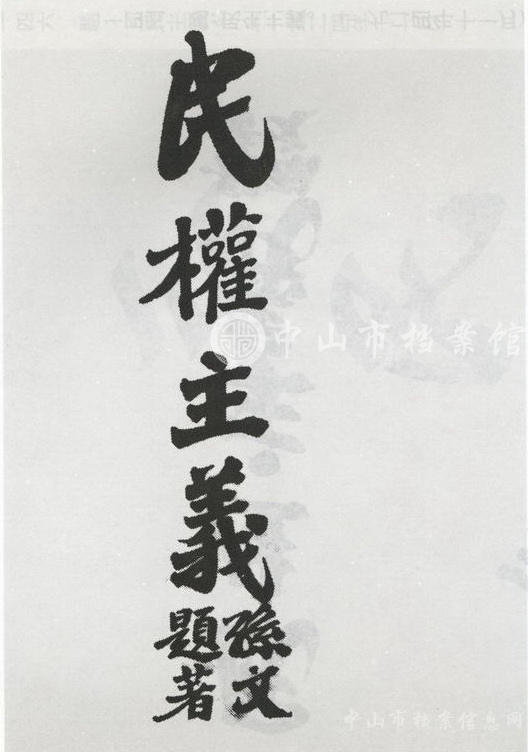 民權主義
孫文
題著
中山市档案馆
中山市档案信息网